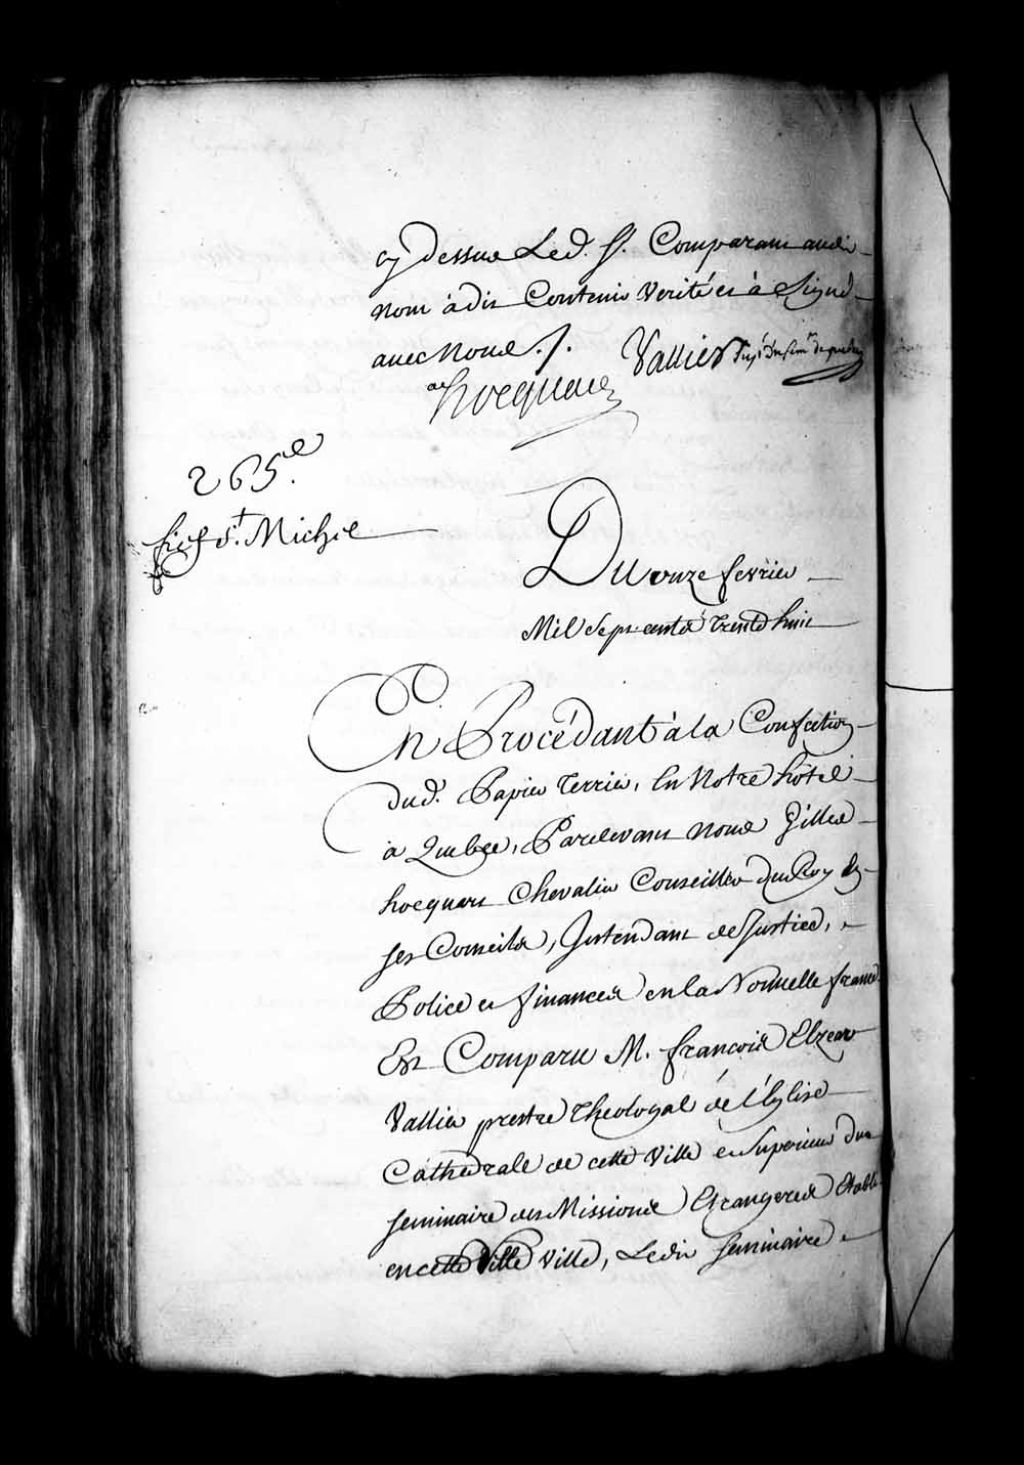 cy dessus Led. S.r Comparant audit
nom à dit Contenir Verité et à Signé
avec Nous ./.
Vallier Sup.r du sem.re de quebec
hocquart
265.e
fief S.t Michel
Du onze fevrier
Mil Sept cents Trente huit
En Procédant à la Confection
dud. Papier Terrier, En Notre hôtel
à Quebec, Pardevant nous Gilles
hocquart Chevalier Conseiller du Roy En
ses Conseils, Intendant de Justice,
Police et finances en la Nouvelle france
Est Comparu M. françois Elzear
Vallier prestre Theologal de l'Eglise
Cathedrale de cette Ville et Superieur du
seminaire des Missions Etrangeres Etabli
en cette Ville Ville, Ledit Seminaire